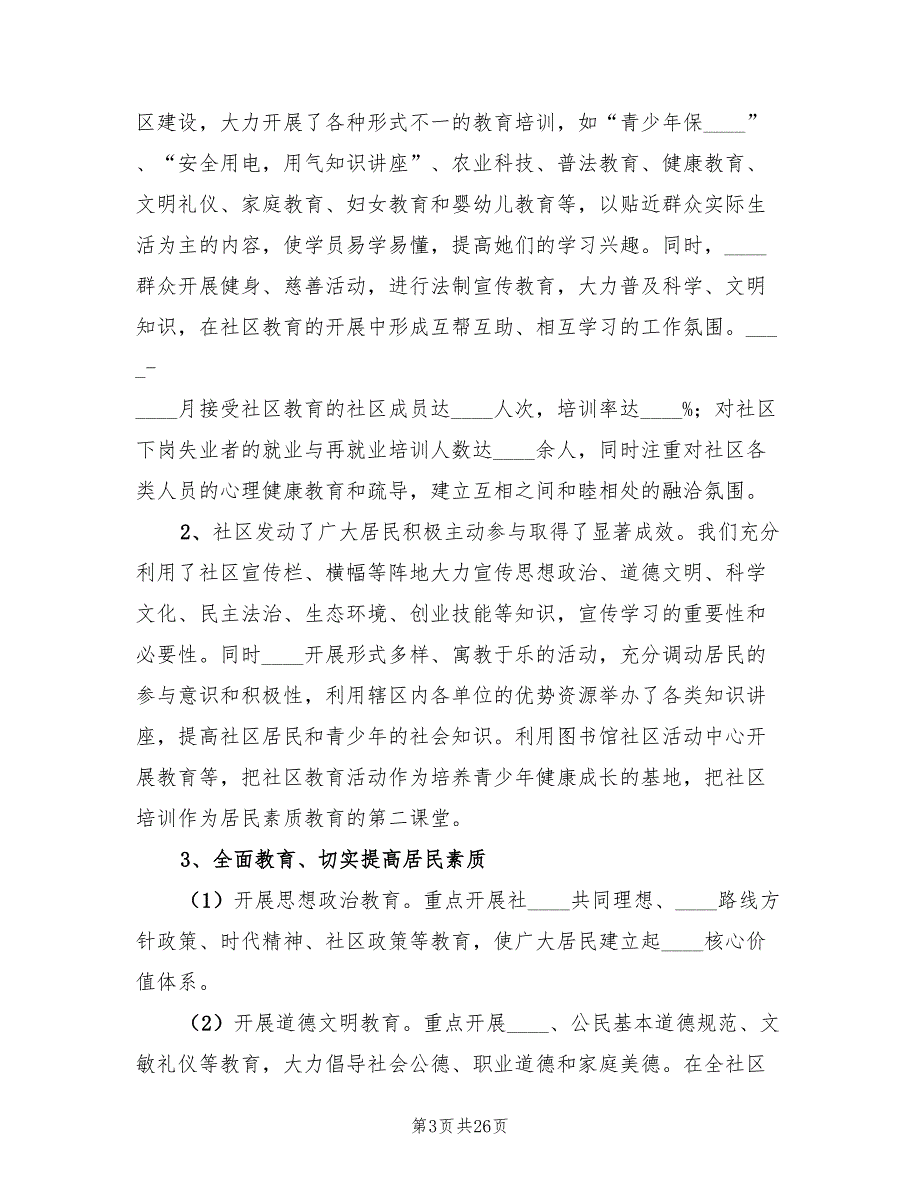 区建设，大力开展了各种形式不一的教育培训，如“青少年保____”
、“安全用电，用气知识讲座”、农业科技、普法教育、健康教育、
文明礼仪、家庭教育、妇女教育和婴幼儿教育等，以贴近群众实际生
活为主的内容，使学员易学易懂，提高她们的学习兴趣。同时，____
群众开展健身、慈善活动，进行法制宣传教育，大力普及科学、文明
知识，在社区教育的开展中形成互帮互助、相互学习的工作氛围。___
_-
____月接受社区教育的社区成员达____人次，培训率达____%；对社区
下岗失业者的就业与再就业培训人数达____余人，同时注重对社区各
类人员的心理健康教育和疏导，建立互相之间和睦相处的融洽氛围。
2、社区发动了广大居民积极主动参与取得了显著成效。我们充分
利用了社区宣传栏、横幅等阵地大力宣传思想政治、道德文明、科学
文化、民主法治、生态环境、创业技能等知识，宣传学习的重要性和
必要性。同时____开展形式多样、寓教于乐的活动，充分调动居民的
参与意识和积极性，利用辖区内各单位的优势资源举办了各类知识讲
座，提高社区居民和青少年的社会知识。利用图书馆社区活动中心开
展教育等，把社区教育活动作为培养青少年健康成长的基地，把社区
培训作为居民素质教育的第二课堂。
3、全面教育、切实提高居民素质
（1）开展思想政治教育。重点开展社____共同理想、____路线方
针政策、时代精神、社区政策等教育，使广大居民建立起____核心价
值体系。
（2）开展道德文明教育。重点开展____、公民基本道德规范、文
敏礼仪等教育，大力倡导社会公德、职业道德和家庭美德。在全社区
第3页共26页